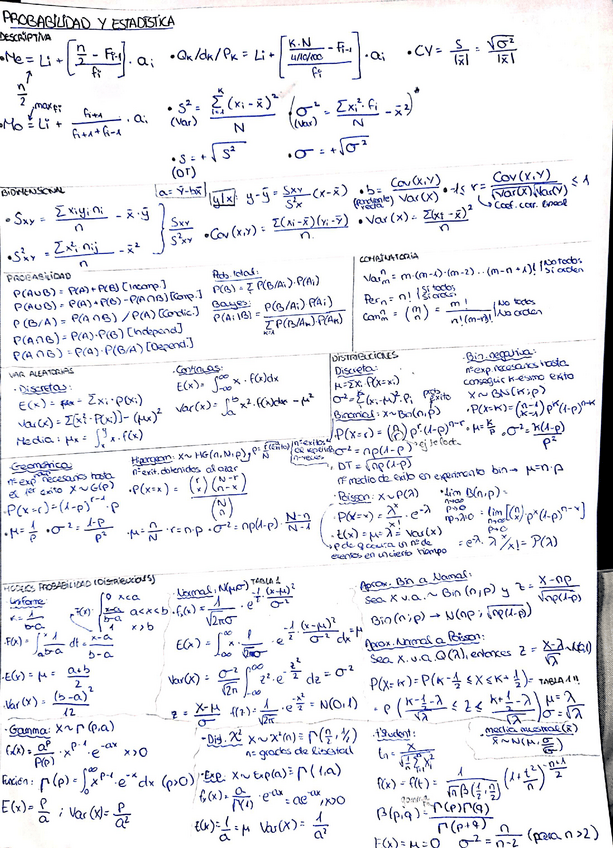 PROBABILIDAD Y ESTADÍSTICA
DESCRIPTIVA
• Me = Li + [(n/2 - Fi-1) / fi] · ai
• Qk/dk/Pk = Li + [(K·N/4/10/100 - Fi-1) / fi] · ai
• CV = S/|x̄| = √σ²/|x̄|
n/2
max fi
• Mo = Li + fi+1/(fi+1 + fi-1) · ai
• S² (Var) = Σ(xi - x̄)²/N
σ² (Var) = Σxi²·fi/N - x̄²
• S = +√S² (DT)
• σ = +√σ²
BIDIMENSIONAL
a = ȳ - bx̄
• Sxy = Σxi yi ni/n - x̄·ȳ
• S²xy = Σx²i nij/n - x̄²
Sxy/S²xy
y|x: y - ȳ = Sxy/S²x (x - x̄)
• Cov(X,Y) = Σ(xi - x̄)(yi - ȳ)/n
• b = Cov(X,Y)/Var(X) (pendiente recta)
• -1 ≤ r = Cov(X,Y)/√Var(X)√Var(Y) ≤ 1
Coef. corr. lineal
• Var(X) = Σ(xi - x̄)²/n
PROBABILIDAD
P(A∪B) = P(A) + P(B) [Incomp.]
P(A∪B) = P(A) + P(B) - P(A∩B) [Comp.]
P(B/A) = P(A∩B) / P(A) [Condic.]
P(A∩B) = P(A)·P(B) [Independ]
P(A∩B) = P(A)·P(B/A) [Depend.]
Prob. total:
P(B) = Σ P(B/Ai)·P(Ai)
Bayes:
P(Ai|B) = P(B/Ai) P(Ai) / Σ P(B/Ak)·P(Ak)
COMBINATORIA
Var = m·(m-1)·(m-2)...(m-n+1) | No todos Sí orden
Per n = n! | Sí todos Sí orden
Com = (m n) = m!/n!(m-n)! | No todos No orden
VAR. ALEATORIAS
• Discretas:
E(X) = μx = Σxi·P(xi)
Var(X) = Σ[xi²·P(xi)] - (μx)²
Media: μx = ∫ x·f(x)
• Continuas:
E(X) = ∫ x·f(x)dx
Var(X) = ∫ x²·f(x)dx - μ²
DISTRIBUCIONES
Discreta:
μ = Σxi P(X=xi)
σ² = Σ(xi-μ)²·Pi
prob. éxito
Binomial: X~Bin(n,p)
P(X=r) = (n r) p^r (1-p)^n-r
σ² = np(1-p)
DT = √np(1-p)
nº medio de éxito en experimento bin → μ = n·p
• Bin. negativa:
nº exp. necesarios hasta
conseguir k-esimo éxito
X ~ BN(k;p)
• P(X=k) = (n-1 k-1) p^k (1-p)^n-k
• μ = k/p · σ² = k(1-p)/p²
Geométrica:
nº exp necesarios hasta
el 1er éxito X~G(p)
• P(X=r) = (1-p)^r-1 · p
• μ = 1/p · σ² = (1-p)/p²
Hipergeom: X~HG(n,N,p)
nº exit. obtenidos al azar
• P(X=x) = (r x)(N-r n-x)/(N n)
• μ = n/N · r = n·p · σ² = np(1-p)· N-n/N-1
• Poisson: X~P(λ)
• P(X=x) = λ^x/x! · e^-λ
• E(X) = μ = λ = Var(X)
• p de q ocurra un nº de
eventos en un cierto tiempo
• lim B(n,p) =
n→∞
p→0
np→λ
= lim [(n x) p^x (1-p)^n-x]
= e^-λ · λ^x/x! = P(λ)
MODELOS PROBABILIDAD (DISTRIBUCIONES)
Uniforme:
k = 1/b-a
F(x) = { 0 x<a
x-a/b-a a<x<b
1 x>b
• F(x) = ∫ 1/b-a dt = x-a/b-a
• E(X) = μ = a+b/2
• Var(X) = (b-a)²/12
• Normal: N(μ,σ) TABLA 1
• f(x) = 1/√2πσ · e^-½ (x-μ)²/σ²
E(X) = ∫ x · 1/√2πσ · e^-½ (x-μ)²/σ² dx = μ
Var(X) = σ²/√2π ∫ z²·e^-z²/2 dz = σ²
Z = X-μ/σ f(z) = 1/√2π · e^-z²/2 = N(0,1)
Aprox. Bin a Normal:
Sea X v.a. ~ Bin(n;p) y Z = X-np/√np(1-p)
Bin(n;p) → N(np; √np(1-p))
Aprox. Normal a Poisson:
Sea X v.a. P(λ), entonces Z = X-λ/√λ ~ N(0,1)
P(X=K) = P(K-½ ≤ X ≤ K+½) = TABLA 1
= P(K-½-λ/√λ ≤ Z ≤ K+½-λ/√λ) μ=λ σ=√λ
• Gamma: X~Γ(p,a)
f(x) = a^p/Γ(p) · x^p-1 · e^-ax x>0
Función: Γ(p) = ∫ x^p-1 · e^-x dx (p>0)
E(X) = p/a ; Var(X) = p/a²
• Dis. χ² X~χ²(n) ≡ Γ(n/2, ½)
n = grados de libertad
• Exp: X~Exp(a) ≡ Γ(1,a)
f(x) = a/Γ(1) · e^-ax = ae^-ax, x>0
E(X) = 1/a = μ Var(X) = 1/a²
t Student:
tn = X/√(1/n Σxi²)
media muestral (x̄)
x̄ ~ N(μ, σ/√n)
f(x) = f(t) = 1/√n β(½, n/2) (1 + t²/n)^-(n+1)/2
β(p,q) = Γ(p)Γ(q)/Γ(p+q)
E(X) = μ = 0 σ² = n/n-2 (para n>2)